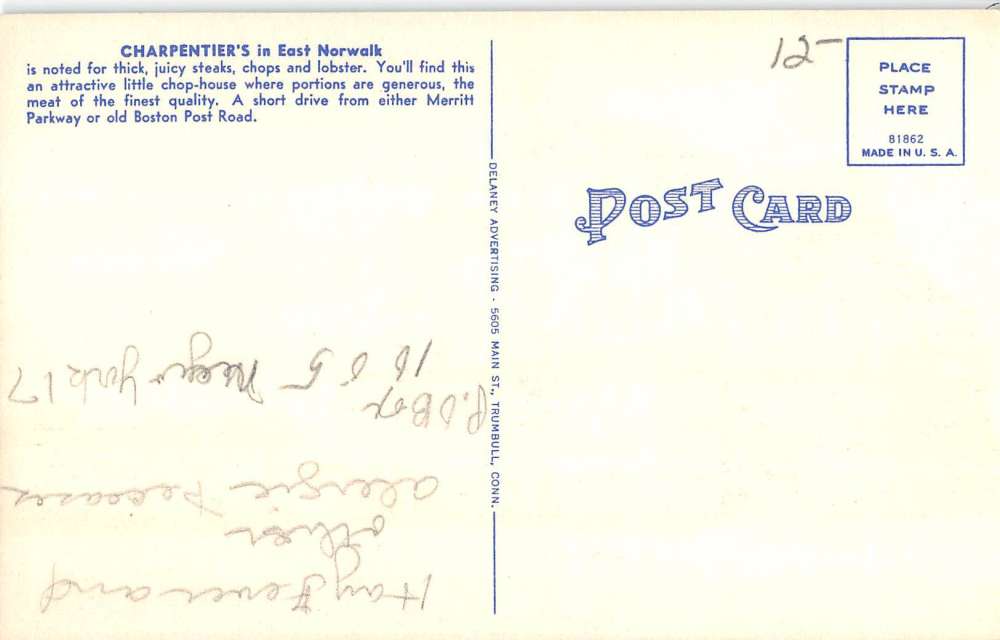 CHARPENTIER'S in East Norwalk
is noted for thick, juicy steaks, chops and lobster. You'll find this
an attractive little chop-house where portions are generous, the
meat of the finest quality. A short drive from either Merritt
Parkway or old Boston Post Road.
DELANEY ADVERTISING - 5605 MAIN ST., TRUMBULL, CONN.
12-
PLACE
STAMP
HERE
81862
MADE IN U. S. A.
POST CARD
Hay Fever and
other
alergic
P.O Box
1605 New York 17